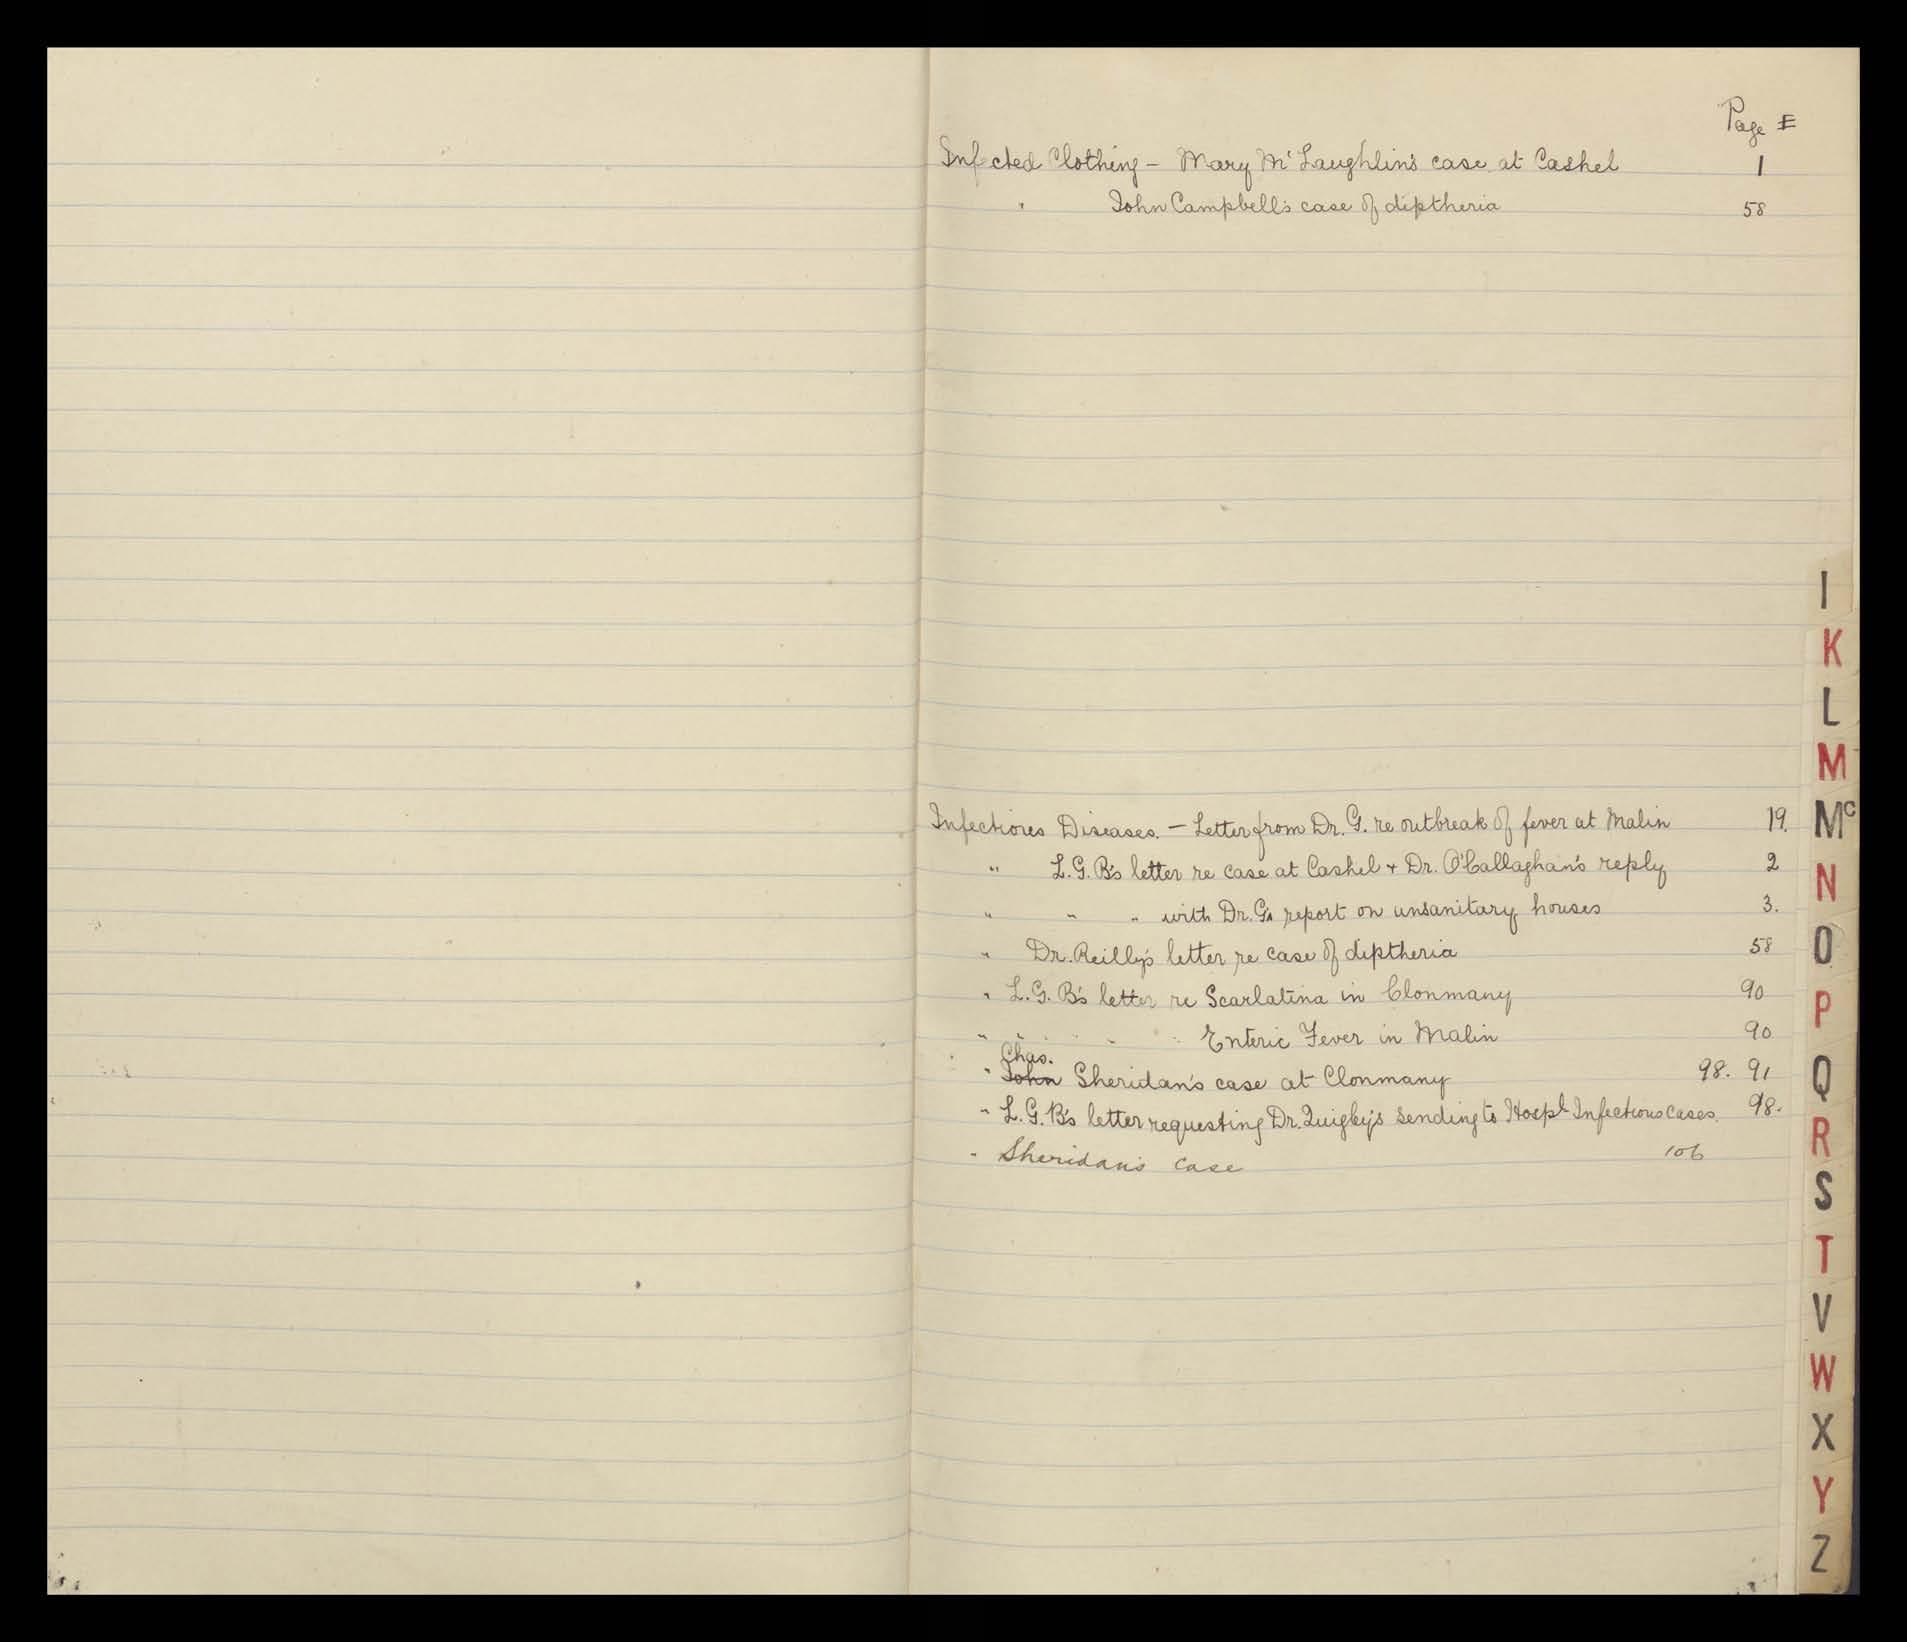 Page E
Infected Clothing – Mary Mc Laughlin's case at Cashel 1
" John Campbell's case of diptheria 58
Infectious Diseases. – Letter from Dr. G. re outbreak of fever at Malin 19.
" L.G.B's letter re case at Cashel + Dr. O'Callaghan's reply 2
" " " with Dr. G's report on unsanitary houses 3.
" Dr. Reilly's letter re case of diptheria 58
" L.G.B's letter re Scarlatina in Clonmany 90
" " " " " Enteric Fever in Malin 90
Chas.
" John Sheridan's case at Clonmany 98. 91
" L.G.B's letter requesting Dr. Quigley's sending to Hospl Infectious cases. 98.
" Sheridan's case 106
I
K
L
M
Mc
N
O
P
Q
R
S
T
V
W
X
Y
Z